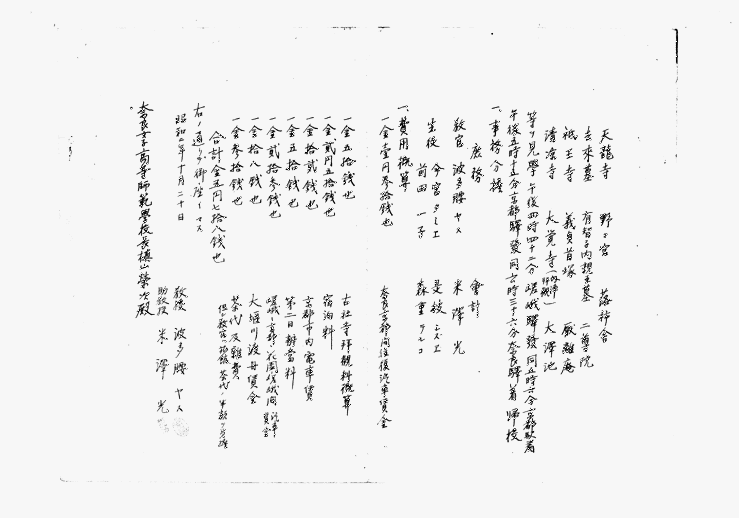 天龍寺 野々宮 落柿舎
去来墓 有智子内親王墓 二尊院
祇王寺 義貞首塚 厭離庵
清凉寺 大覚寺 大澤池
等ヲ見學 午後四時四十二分 嵯峨驛發 同五時六分京都驛着
午後五時十五分京都驛發 同六時三十六分奈良驛着 歸校
一、事務分擔
庶務 會計
教官 波多腰ヤス 米澤 光
生徒 今宮 是枝シズエ
前田一子 森重
一、費用概算
一金壹円参拾銭也 奈良京都間往復汽車賃金
一金五拾銭也 古社寺拝観料概算
一金貳円五拾銭也 宿泊料
一金拾貳銭也 京都市内電車賃
一金五拾銭也 第二日辨當料
一金貳拾参銭也 嵯峨京都
一金拾八銭也 大堰川渡舟賃金
一金参拾銭也 茶代及雑費
合計金五円七拾八銭也
右ノ通リ
昭和二年十月二十日
教授 波多腰ヤス
助教授 米澤 光
奈良女子高等師範學校長槙山榮次殿